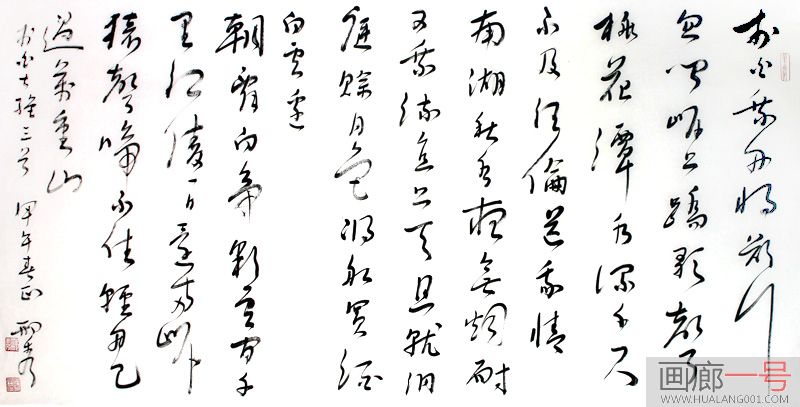 李白乘舟將欲行
忽聞岸上踏歌聲
桃花潭水深千尺
不及汪倫送我情
南湖秋水夜無煙耐
可乘流直上天且就洞
庭賒月色將船買酒
白雲邊
朝辭白帝彩雲間千
里江陵一日還兩岸
猿聲啼不住輕舟已
過萬重山
李白七絕三首 甲午春正
画廊一号
WWW.HUALANG001.COM